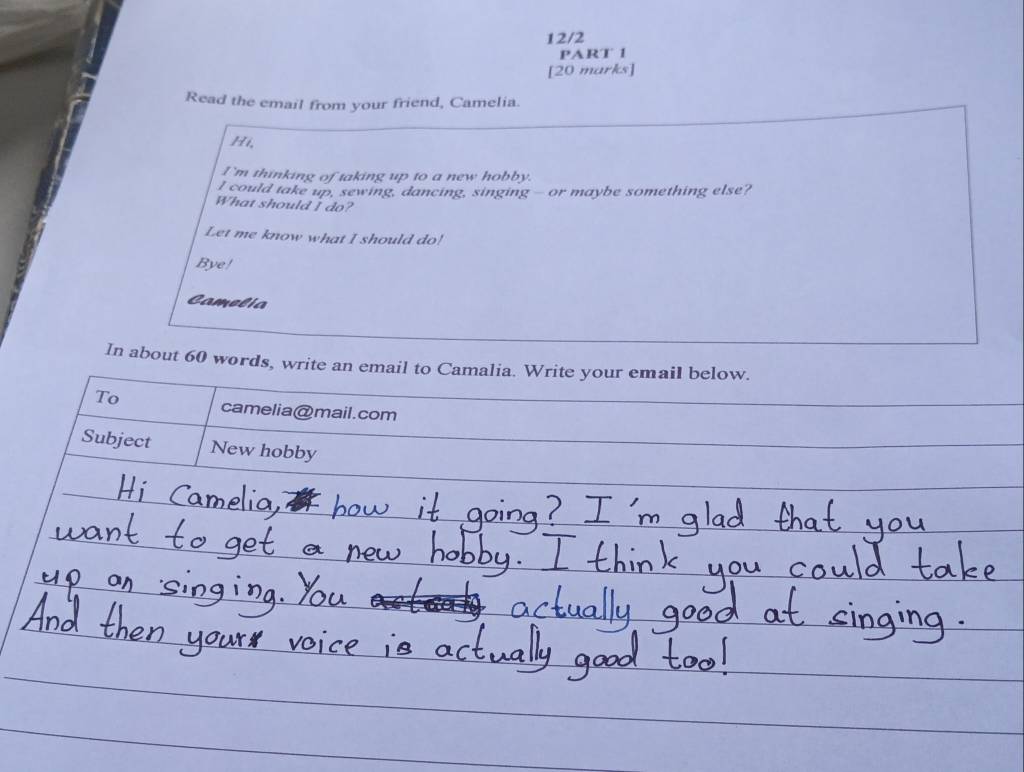 12/2
PART 1
[20 marks]
Read the email from your friend, Camelia.
Hi,
I'm thinking of taking up to a new hobby.
I could take up, sewing, dancing, singing – or maybe something else?
What should I do?
Let me know what I should do!
Bye!
Camelia
In about 60 words, write an email to Camalia. Write your email below.
To camelia@mail.com
Subject New hobby
Hi Camelia, how it going? I'm glad that you
want to get a new hobby. I think you could take
up an singing. You actually good at singing.
And then your voice is actually good too!